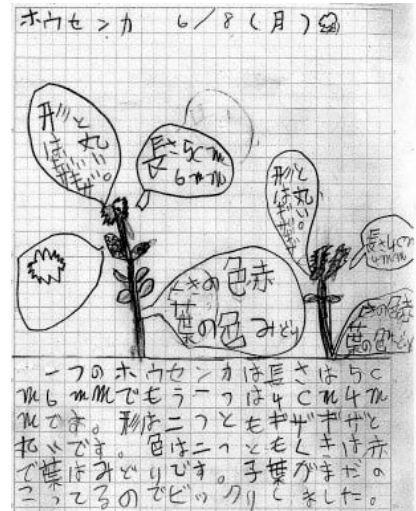 ホウセンカ 6/8(月)
形はギザギザ
と丸い。
長さ5cm
6mm
形はギザギザ
と丸い。
長さ4cm
4mm
くきの色赤
葉の色みどり
きの色赤
葉の色みどり
一つのホウセンカは長さは5c
m6mmでもう一つは4cm4m
mです。形は二つともギザギザと
丸いです。色は二つともくきは赤
で葉はみどりです。子葉がまだの
こってるのでビックリしました。